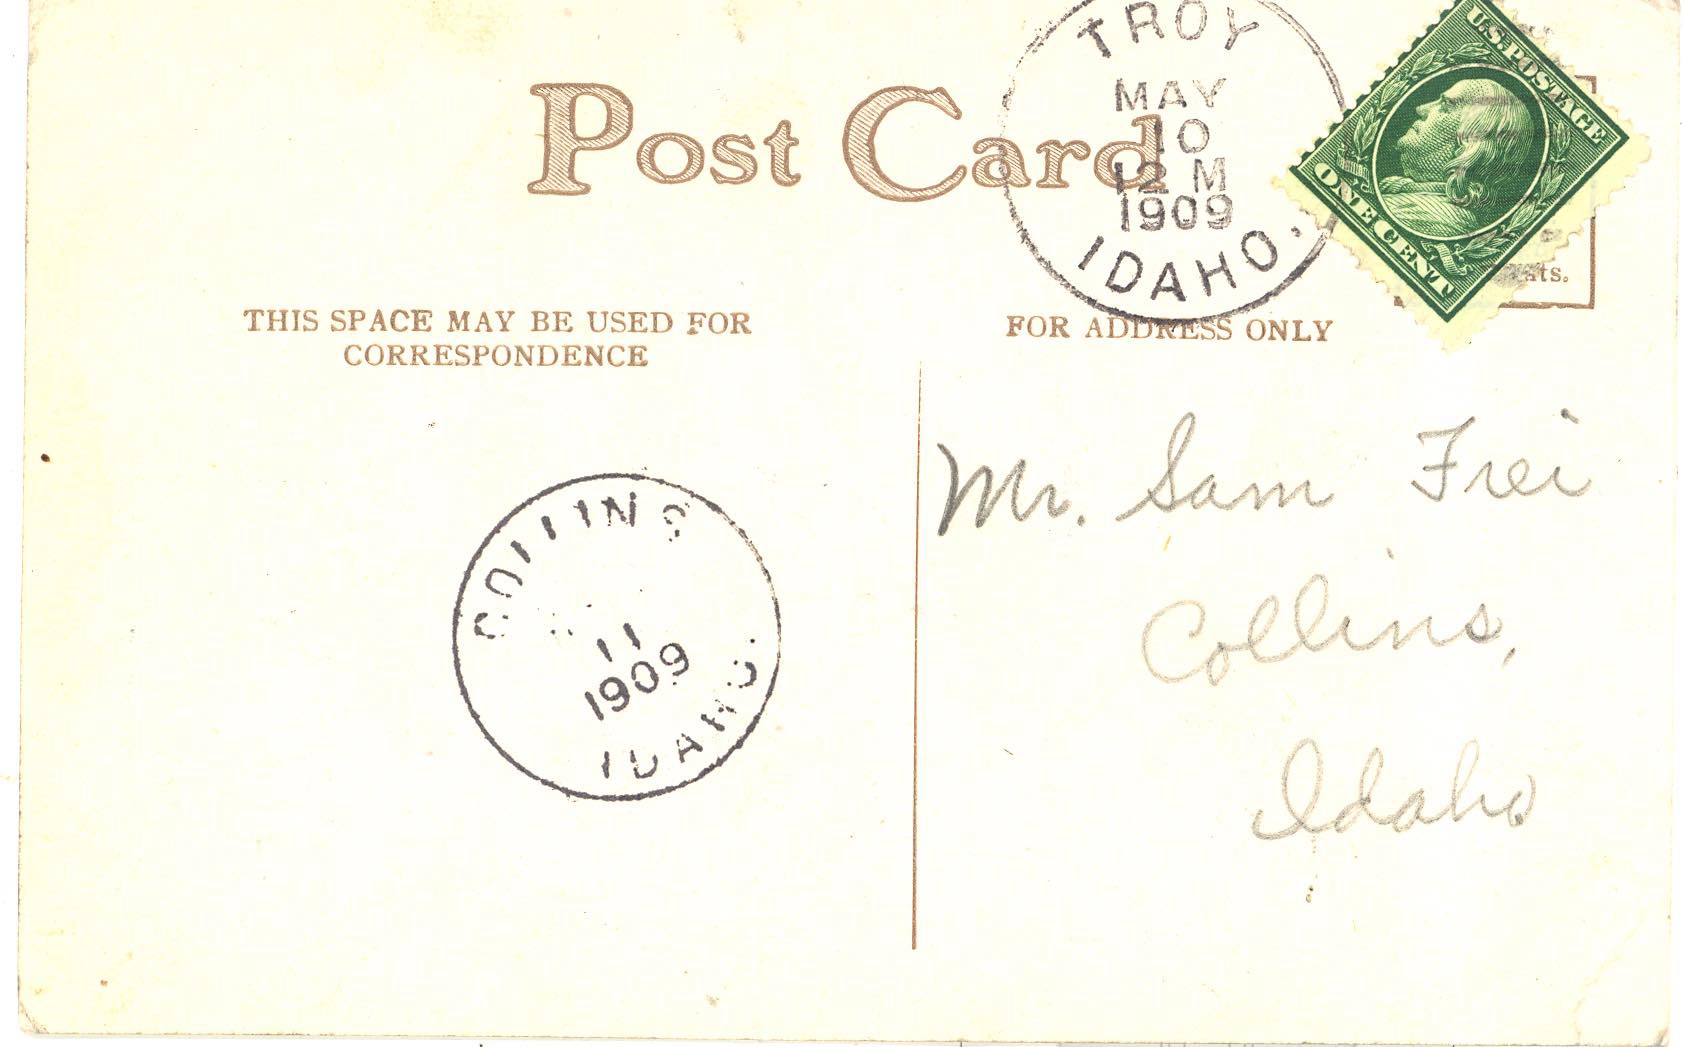 Post Card
TROY
MAY
10
12 M
1909
IDAHO.
U.S. POSTAGE
ONE CENT
THIS SPACE MAY BE USED FOR
CORRESPONDENCE
FOR ADDRESS ONLY
COLLINS
11
1909
IDAHO.
Mr. Sam Frei
Collins,
Idaho